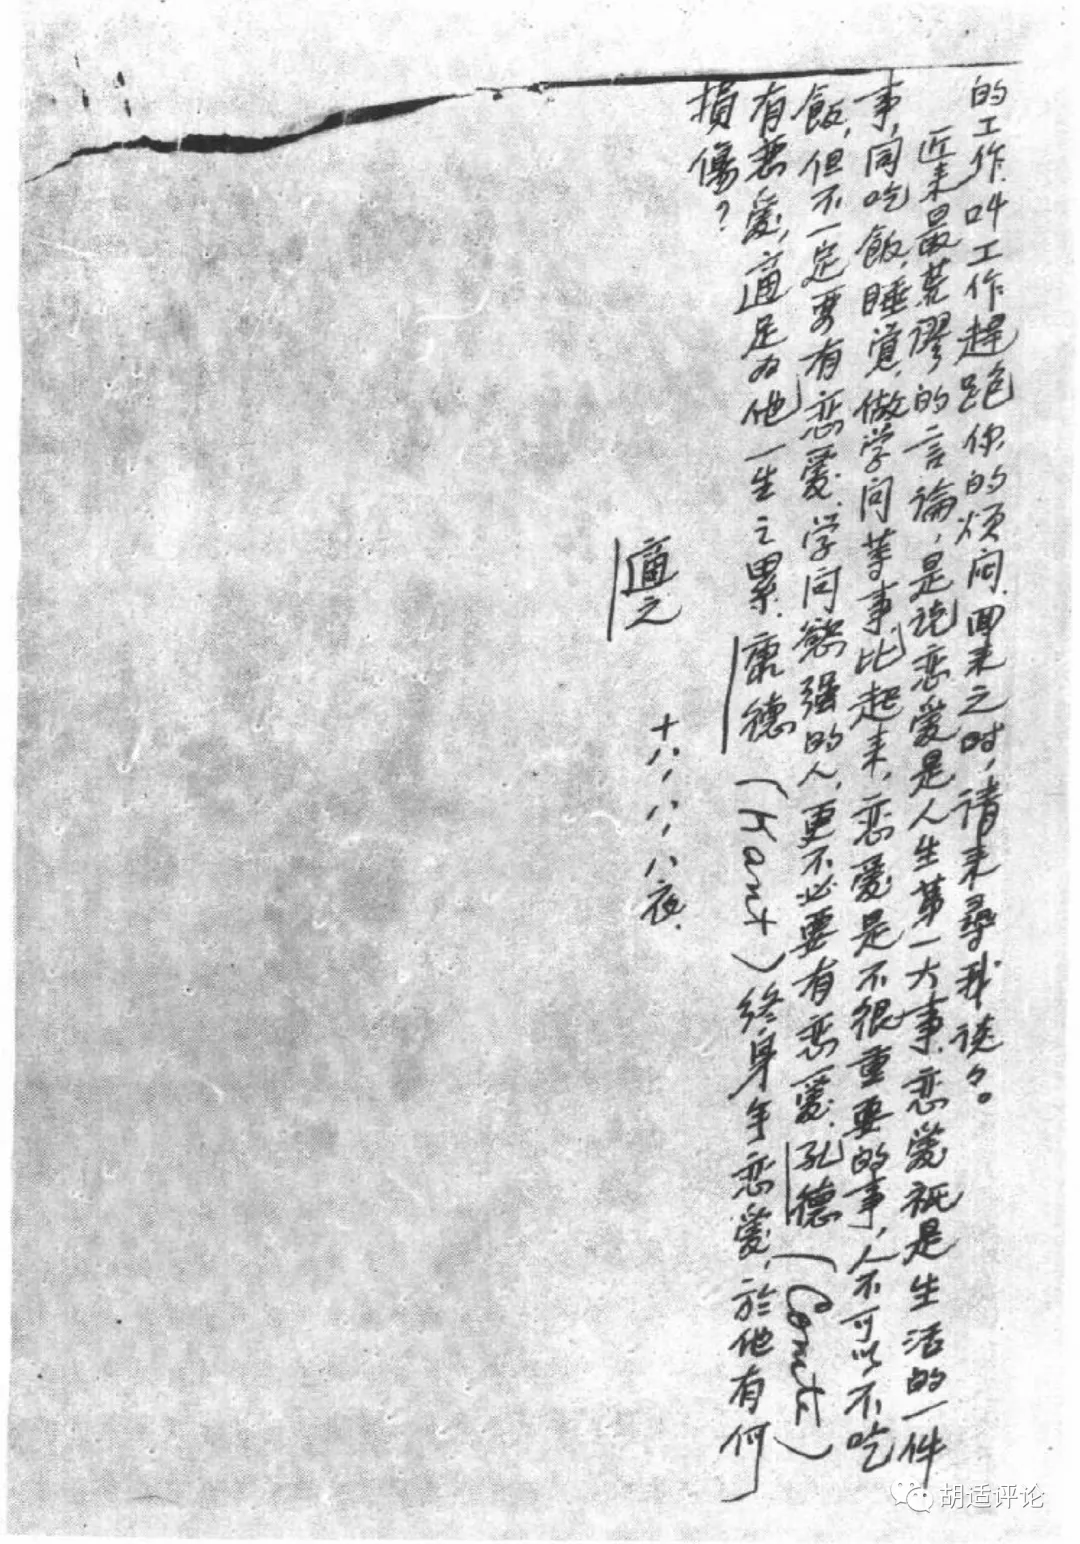 的工作.叫工作趕跑你的烦闷.回来之时,请来尋我谈々。
近来最荒谬的言論,是说恋爱是人生第一大事.恋爱祇是生活的一件
事,同吃飯,睡覚,做学问等事比起来,恋爱是不很重要的事,人不可以不吃
飯,但不一定要有恋爱.学问慾强的人,更不必要有恋爱.孔德(Comte)
有恋爱,適足为他一生之累.康德(Kant)終身無恋爱,於他有何
損傷?
適之
十八,八,八夜.
胡适评论